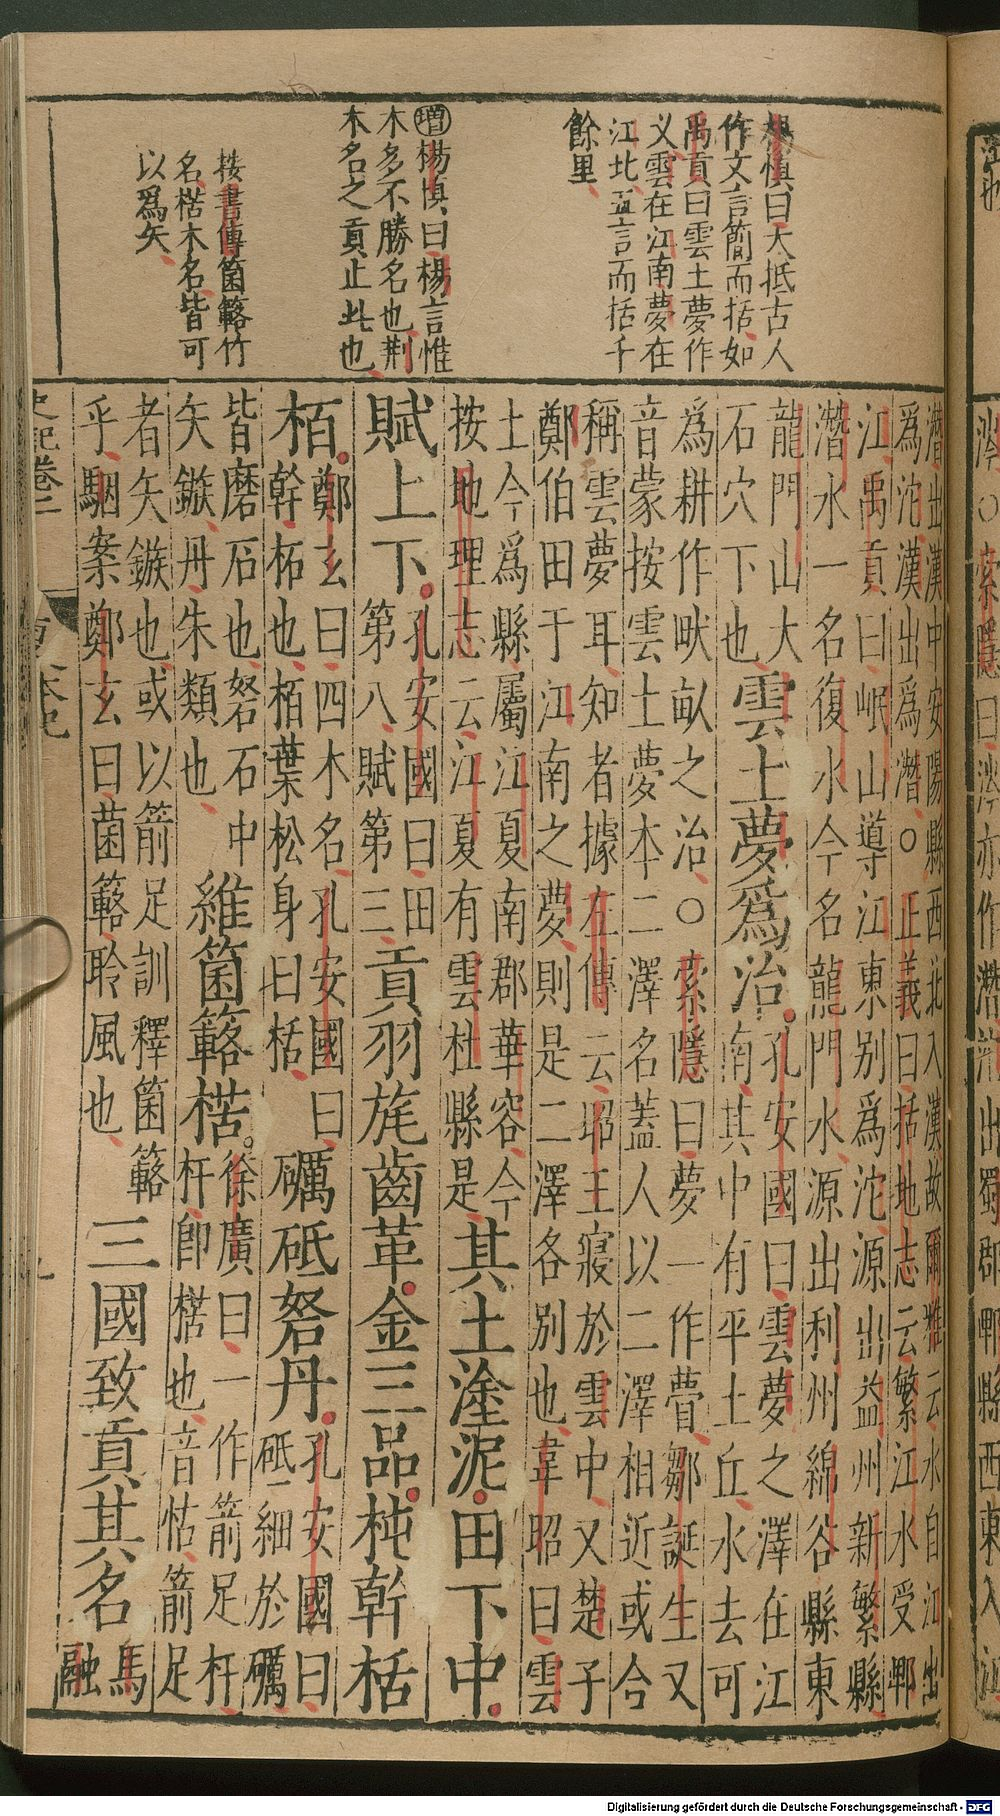 楊慎曰大抵古人
作文言簡而括如
禹貢曰雲土夢作
乂雲在江南夢在
江北五言而括千
餘里
增楊慎曰楊言惟
木多不勝名也荆
木名之貢止此也
按書傳箘簵竹
名楛木名皆可
以爲矢
潛出漢中安陽縣西北入漢故爾雅云水自江出
爲沱漢出爲潛○正義曰括地志云繁江水受郫
江禹貢曰岷山導江東別爲沱源出益州新繁縣
潛水一名復水今名龍門水源出利州綿谷縣東
龍門山大
石穴下也
雲土夢爲治
孔安國曰雲夢之澤在江
南其中有平土丘水去可
爲耕作畎畝之治○索隱曰夢一作瞢鄒誕生又
音蒙按雲土夢本二澤名蓋人以二澤相近或合
稱雲夢耳知者據左傳云昭王寢於雲中又楚子
鄭伯田于江南之夢則是二澤各別也韋昭曰雲
土今爲縣屬江夏南郡華容今
按地理志云江夏有雲杜縣是
其土塗泥田下中
賦上下
孔安國曰田
第八賦第三
貢羽旄齒革金三品杶幹栝
栢
鄭玄曰四木名孔安國曰
幹柘也栢葉松身曰栝
礪砥砮丹
孔安國曰
砥細於礪
皆磨石也砮石中
矢鏃丹朱類也
維箘簵楛
徐廣曰一作箭足杆
杆卽楛也音怙箭足
者矢鏃也或以箭足訓釋箘簵
乎駰案鄭玄曰菌簵聆風也
三國致貢其名
馬
融
史記卷二
夏本紀
九
○索隱曰涔亦作潛沱出蜀郡郫縣西東入江
Digitalisierung gefördert durch die Deutsche Forschungsgemeinschaft - DFG